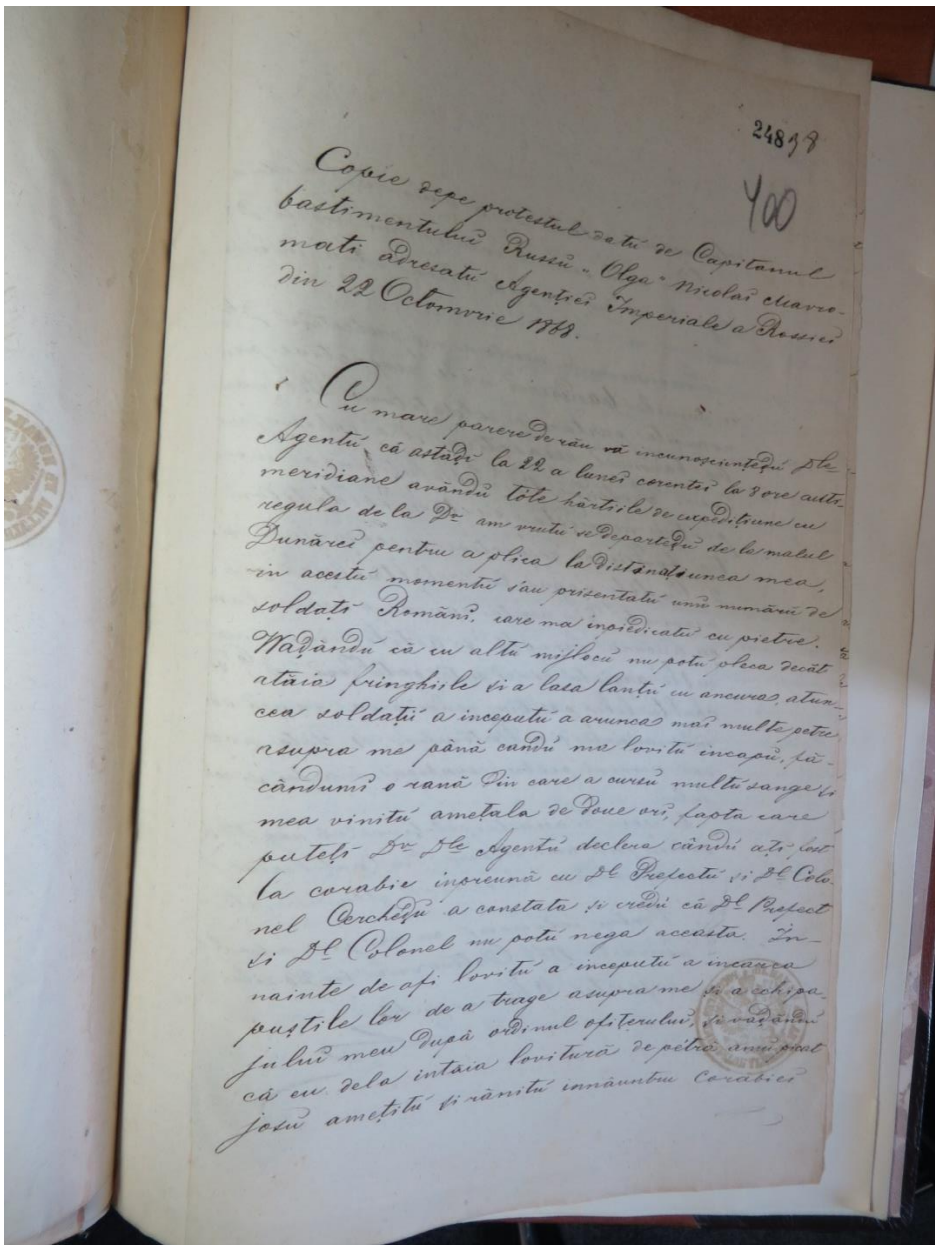 24838
400
Copie depe protestul datŭ de Capitanul
bastimentuluĭ Russŭ „Olga" Nicolai Mavro-
mati adresatŭ Agenţieĭ Imperiale a Rossieĭ
din 22 Octomvrie 1868.
Cu mare parere de rău vă incunosciinţeḑŭ Dle
Agentŭ că astăḑĭ la 22 a luneĭ corenteĭ la 8 ore anti-
meridiane avândŭ tote hârtiile de expediţiune cu
regula de la Dv am vrutŭ se departeḑŭ de la malul
Dunăreĭ pentru a plica la distinaţiunea mea,
in acestŭ momentŭ s'au prisentatŭ unŭ numărŭ de
soldaţĭ Românĭ, care ma inpiedicatŭ cu pietre.
Waḑândŭ că cu altŭ mijlocŭ nu potŭ pleca decât
a tăia fringhiile si a lasa lanţŭ cu ancura, atun-
cea soldaţiĭ a inceputŭ a arunca maĭ multe petre
asupra me până candŭ ma lovitŭ incapŭ, fă-
cândumĭ o rană din care a cursŭ multŭ sange şi
mea vinitŭ ameţala de doue ori, fapta care
puteţĭ Dv Dle Agentŭ declera cândŭ aţĭ fost
la corabie inpreună cu Dl Prefectŭ şi Dl Colo-
nel Cercheḑŭ a constata şi credŭ că Dl Prefect
si Dl Colonel nu potŭ nega aceasta. In-
nainte de a fi lovitŭ a inceputŭ a incarca
puştile lor de a trage asupra me şi a echipa-
juluĭ meu după ordinul ofiţeruluĭ, şi văḑândŭ
că eu dela intăia lovitură de pétră amŭ picat
josŭ ameţitŭ şi rănitŭ innăuntru corăbieĭ